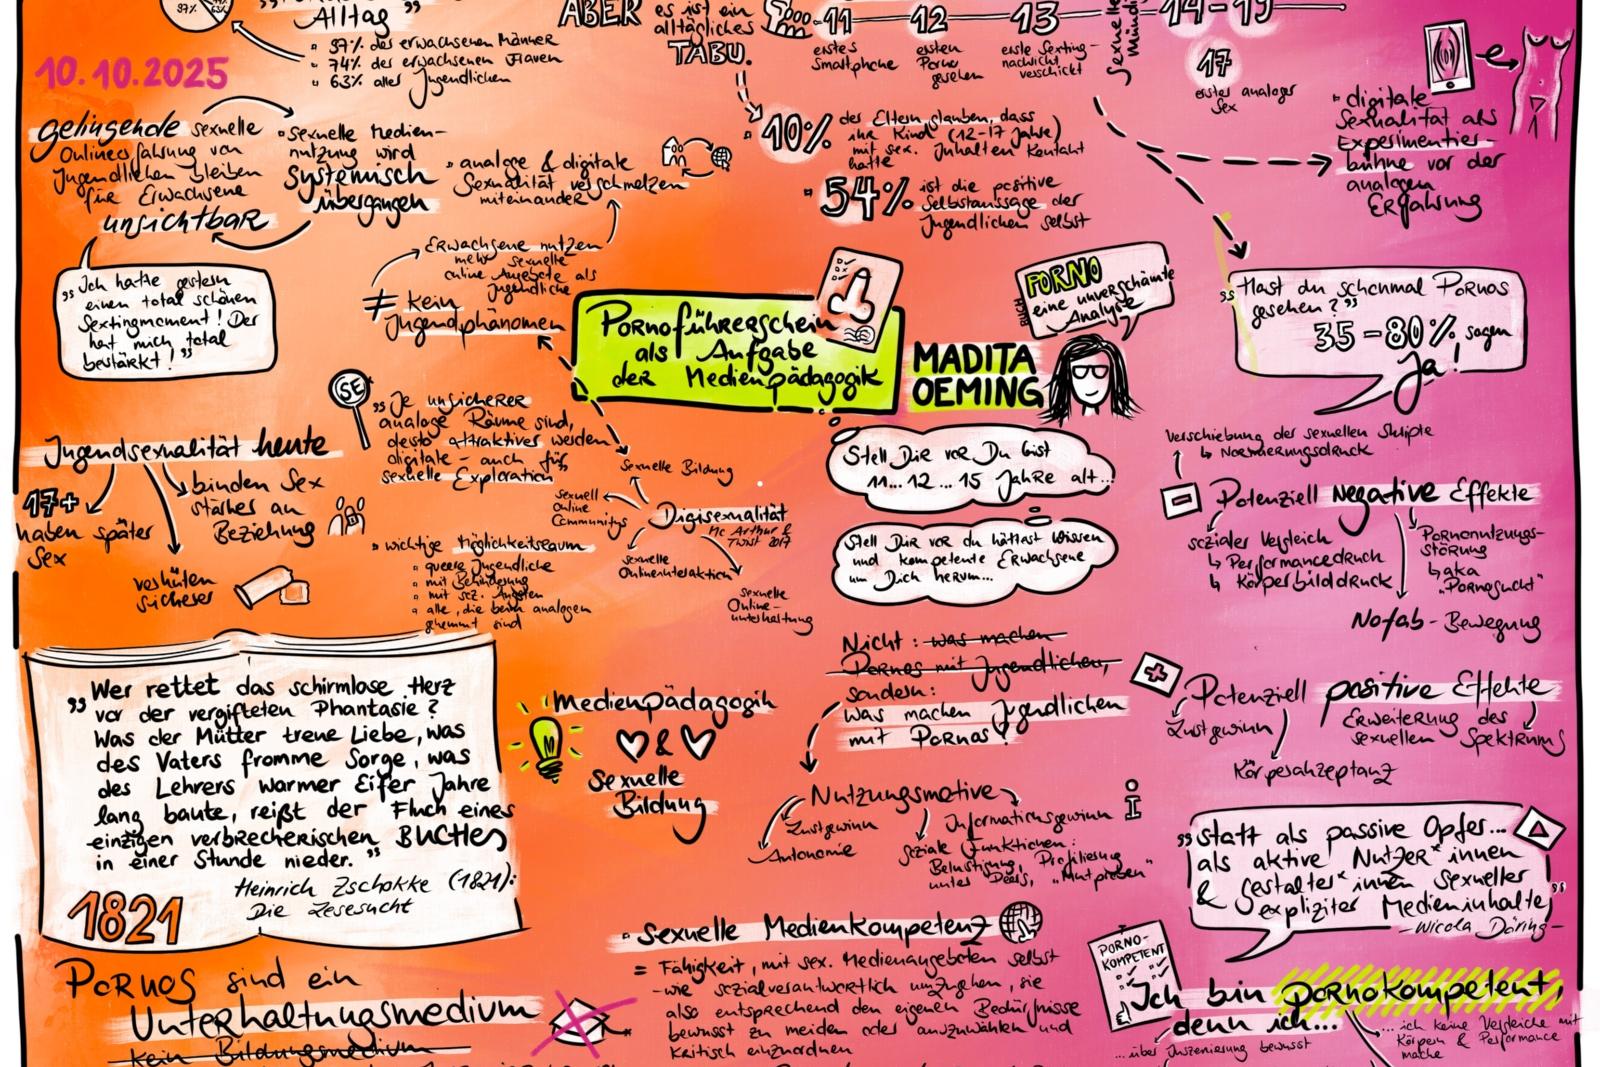 Alltag "
97% der erwachsenen Männer
74% der erwachsenen Frauen
63% aller Jugendlichen
10.10.2025
ABER
es ist ein
alltägliches
TABU.
11
erstes
Smartphone
12
ersten
Porno
gesehen
13
erste Sexting-
nachricht
verschickt
17
erster analoger
Sex
digitale
Sexualität als
Experimentier-
bühne vor der
analogen
Erfahrung
gelingende sexuelle
Onlineerfahrung von
Jugendlichen bleiben
für Erwachsene
unsichtbar
sexuelle Medien-
nutzung wird
systemisch
übergangen
analoge & digitale
Sexualität verschmelzen
miteinander
10% der Eltern glauben, dass
ihr Kind (12-17 Jahre)
mit sex. Inhalten Kontakt
hatte
54% ist die positive
Selbstaussage der
Jugendlichen selbst
„Ich hatte gestern
einen total schönen
Sextingmoment! Der
hat mich total
bestärkt!"
Erwachsene nutzen
mehr sexuelle
online Angebote als
Jugendliche
≠ kein
Jugendphänomen
Pornoführerschein
als Aufgabe
der Medienpädagogik
MADITA
OEMING
BUCH
PORNO
eine unverschämte
Analyse
„Hast du schonmal Pornos
gesehen?"
35-80% sagen
Ja!
SE
„Je unsicherer
analoge Räume sind,
desto attraktiver werden
digitale - auch für
sexuelle Exploration"
Jugendsexualität heute
17+
haben später
Sex
binden Sex
stärker an
Beziehung
verhüten
sicherer
wichtige Möglichkeitsraum
queere Jugendliche
mit Behinderung
mit soz. Ängsten
alle, die beim analogen
gehemmt sind
Digisexualität
Mc Arthur &
Twist 2017
sexuelle Bildung
sexuell
online
Communitys
sexuelle
Onlineinteraktion
sexuelle
Online-
unterhaltung
Stell Dir vor Du bist
11... 12 ... 15 Jahre alt...
Stell Dir vor du hättest Wissen
und kompetente Erwachsene
um Dich herum...
Verschiebung der sexuellen Skripte
↳ Normierungsdruck
Potenziell negative Effekte
sozialer Vergleich
↳ Performancedruck
↳ Körperbilddruck
Pornonutzungs-
störung
↳ aka
"Pornosucht"
Nofab - Bewegung
„Wer rettet das schirmlose Herz
vor der vergifteten Phantasie?
Was der Mütter treue Liebe, was
des Vaters fromme Sorge, was
des Lehrers warmer Eifer Jahre
lang baute, reißt der Fluch eines
einzigen verbrecherischen BUCHES
in einer Stunde nieder."
Heinrich Zschokke (1821):
Die Lesesucht
1821
Medienpädagogik
&
Sexuelle
Bildung
Nicht: was machen
Pornos mit Jugendlichen,
sondern:
was machen Jugendlichen
mit Pornos?
Nutzungsmotive
Lustgewinn
Autonomie
Informationsgewinn
soziale Funktionen:
Belustigung, Profilierung
unter Peers, "Mutproben"
Potenziell positive Effekte
Lustgewinn
Körperakzeptanz
Erweiterung des
sexuellen Spektrums
„statt als passive Opfer...
als aktive Nutzer*innen
& Gestalter*innen sexueller
expliziter Medieninhalte"
- Nicola Döring -
sexuelle Medienkompetenz
= Fähigkeit, mit sex. Medienangeboten selbst
-wie sozialverantwortlich umzugehen, sie
also entsprechend den eigenen Bedürfnisse
bewusst zu meiden oder auszuwählen und
kritisch einzuordnen
Pornos sind ein
Unterhaltungsmedium
kein Bildungsmedium
PORNO-
KOMPETENT
Ich bin pornokompetent,
denn ich...
...über Inszenierung bewusst
... ich keine Vergleiche mit
Körpern & Performance
mache